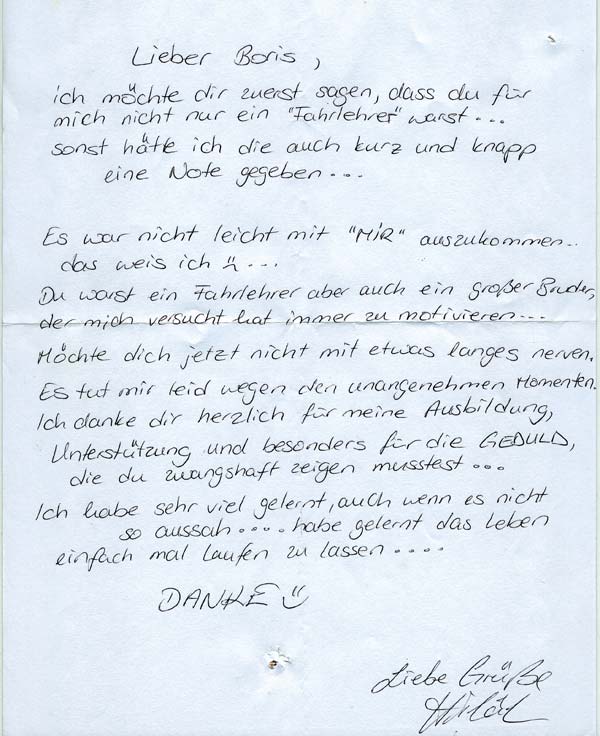 Lieber Boris,
ich möchte dir zuerst sagen, dass du für
mich nicht nur ein "Fahrlehrer" warst...
sonst hätte ich die auch kurz und knapp
eine Note gegeben...
Es war nicht leicht mit "MIR" auszukommen..
das weis ich ...
Du warst ein Fahrlehrer aber auch ein großer Bruder,
der mich versucht hat immer zu motivieren...
Möchte dich jetzt nicht mit etwas langes nerven.
Es tut mir leid wegen den unangenehmen Momenten.
Ich danke dir herzlich für meine Ausbildung,
Unterstützung und besonders für die GEDULD,
die du zwangshaft zeigen musstest...
Ich habe sehr viel gelernt, auch wenn es nicht
so aussah.... habe gelernt das Leben
einfach mal laufen zu lassen....
DANKE
Liebe Grüße